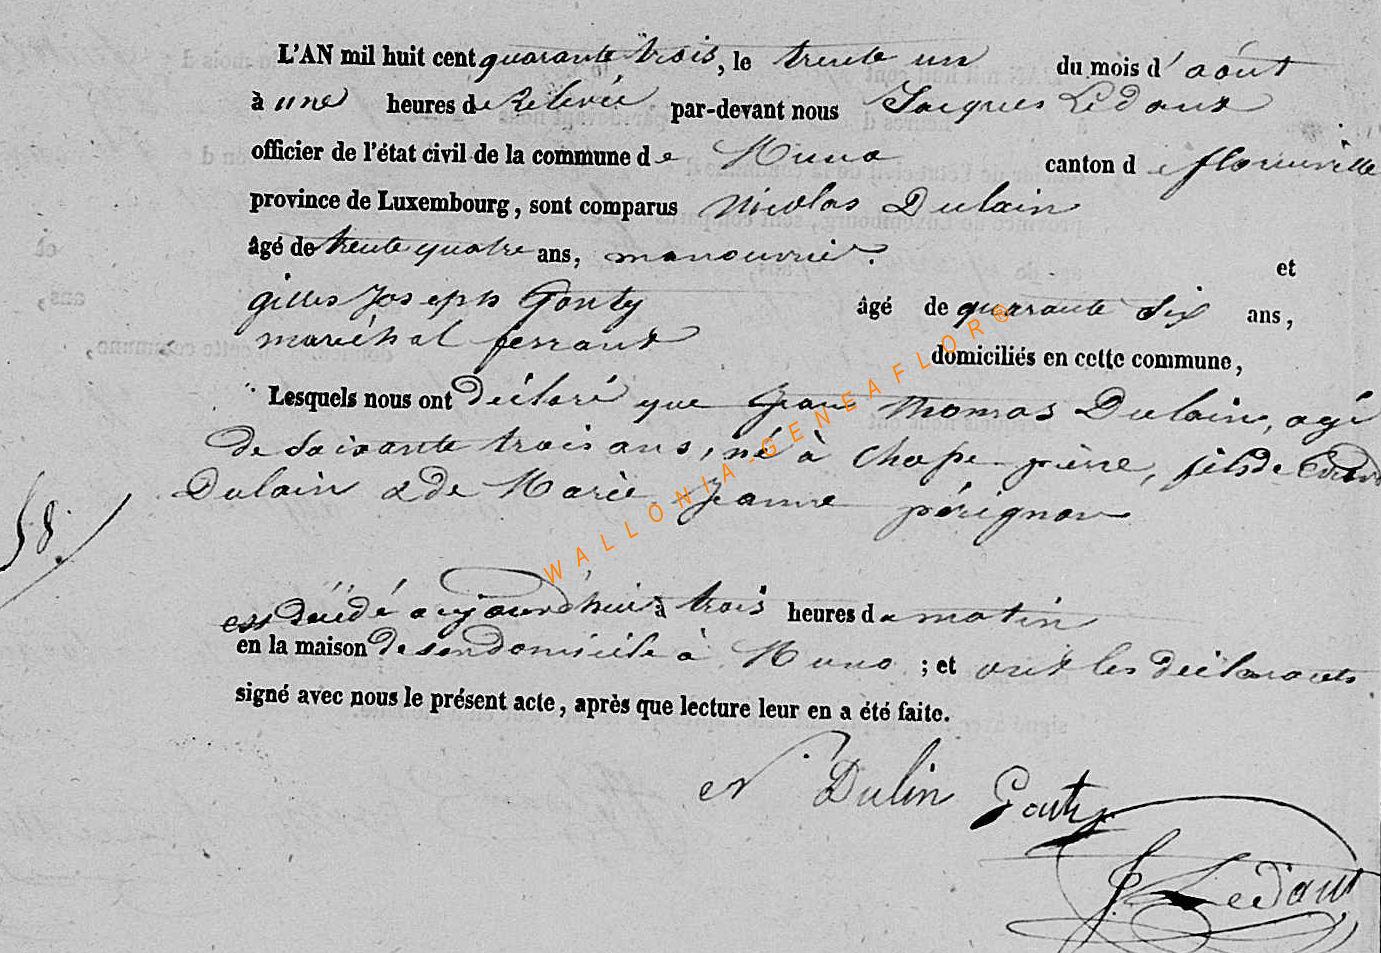 L'AN mil huit cent quarante trois, le trente un du mois d'août
à une heures de Relevée par-devant nous Jacques Ledoux
officier de l'état civil de la commune de Muno canton de florenville
province de Luxembourg, sont comparus Nicolas Dulain
âgé de trente quatre ans, manouvrier. et
gilles Joseph Gouty âgé de quarante Six ans,
maréchal ferrant domiciliés en cette commune,
Lesquels nous ont Déclaré que Jean Thomas Dulain, agé
de soixante trois ans, né à Chapepierre, fils de
Dulain & de Marie Jeanne pérignon
58.
est décédé aujourd'hui à trois heures du matin
en la maison De son domicile à Muno ; et ont les déclarants
signé avec nous le présent acte, après que lecture leur en a été faite.
N. Dulin Gouty
J Ledoux
WALLONIA-GENEAFLOR®